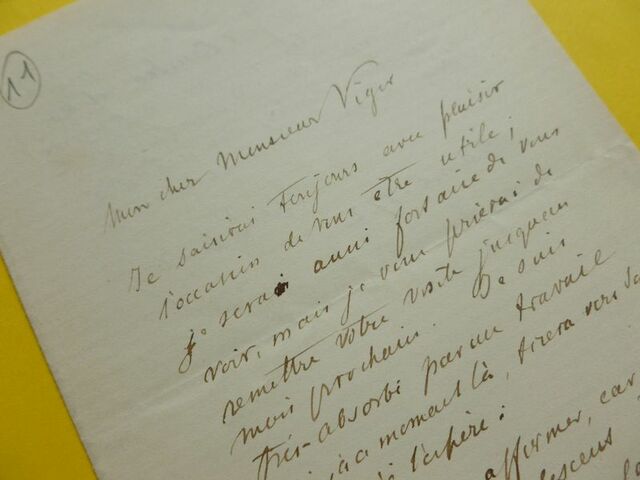 11
Mon cher Monsieur Viger
Je saisirai toujours avec plaisir
l'occasion de vous être utile;
je serai aussi fort aise de vous
voir, mais je vous prierai de
remettre votre visite jusqu'au
mois prochain. Je suis
très-absorbé par un travail
à ce moment là, tirera vers sa
l'espère:
affirmer, car